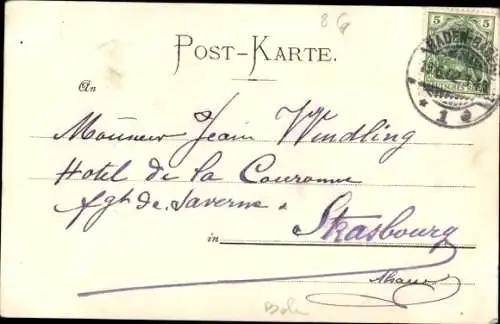 8
5
BADEN-BADEN
1
POST-KARTE.
An
Monsieur Jean Windling
Hotel de la Couronne
fgb de Saverne
in Strasbourg
Alsace